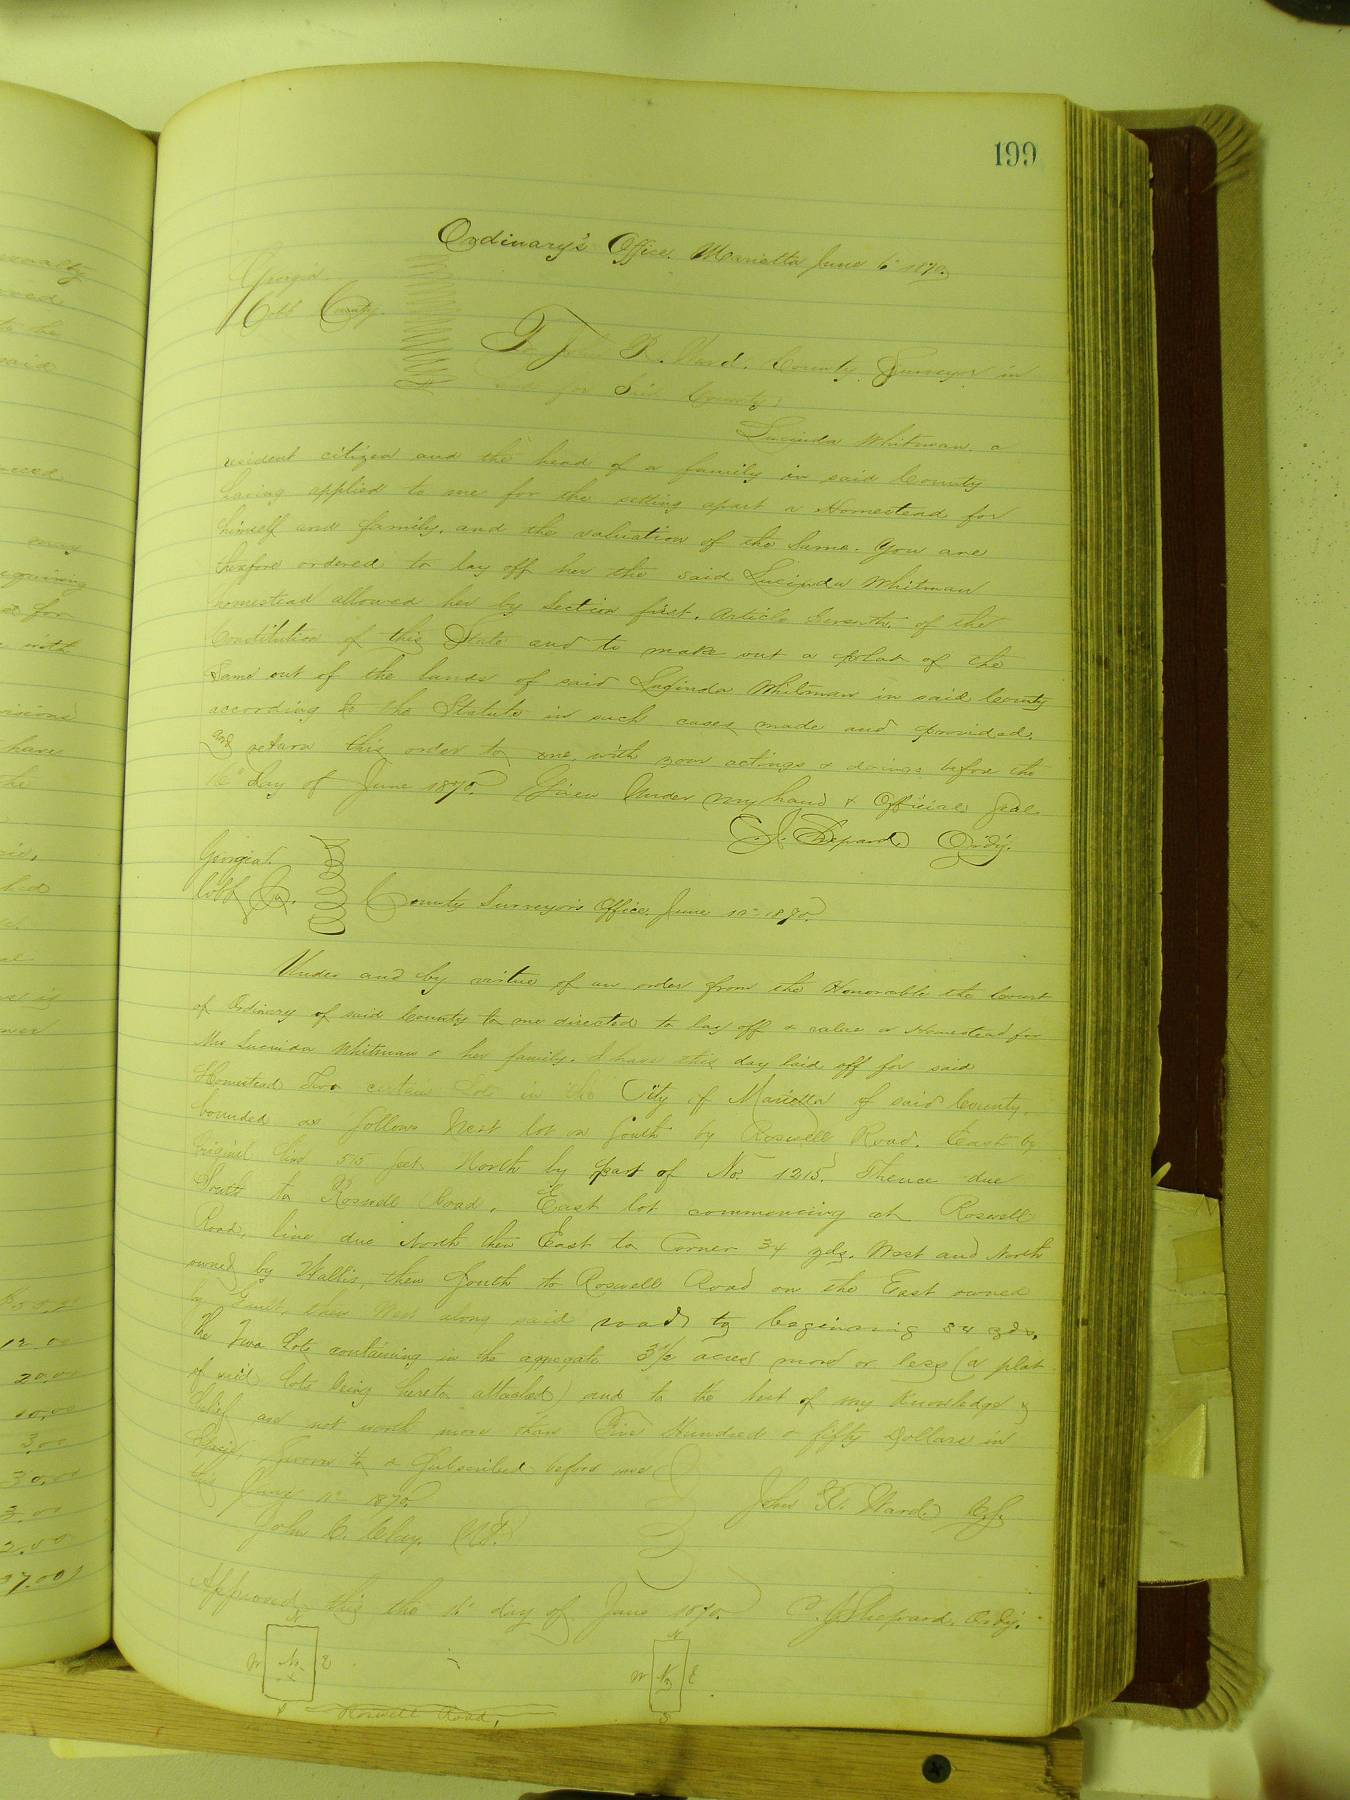 199
Ordinary's Office. Marietta June 6th 1870.
Georgia
Cobb County.
To John R. Ward. County Surveyor in
and for said County;
Lucinda Whitman. a
resident citizen and the head of a family in said County
having applied to me for the setting apart a Homestead for
himself and family, and the valuation of the Same. You are
therefore ordered to lay off her the said Lucinda Whitman
homestead allowed her by Section first. Article Seventh. of the
Constitution of this State and to make out a plat of the
Same out of the lands of said Lucinda Whitman in said County
according to the Statute in such cases made and provided.
and return this order to me, with your actings & doings before the
16th day of June 1870. Given Under my hand & Official Seal
C.J. Shepard Ord'y.
Georgia.
Cobb Co.
County Surveyors Office. June 1870.
Under and by virtue of an order from the Honorable the Court
of Ordinary of said County to me directed to lay off & value a Homestead for
Mrs Lucinda Whitman & her family. I have this day laid off for said
Homestead Two certain Lots in the City of Marietta of said County.
bounded as follows West lot on South by Roswell Road. East by
Original line 515 feet North by part of No. 1215. Thence due
South to Roswell Road. East lot commencing at Roswell
Road, line due North then East to Corner 34 yds. West and North
owned by Wallis, then South to Roswell Road on the East owned
by Gault, then West along said road to beginning 34 yds.
The Two Lots containing in the aggregate 3½ acres more or less (a plat
of said Lots being hereto attached) and to the best of my Knowledge &
belief are not worth more than Five Hundred & fifty Dollars in
Specie, Sworn to & Subscribed before me
this June 11th 1870.
John R. Ward. C.S.
John C.
Approved this the day of June 1870. C.J. Shepard, Ord'y.
N
W No. 1 E
S
N
W No 2 E
S
Roswell Road.